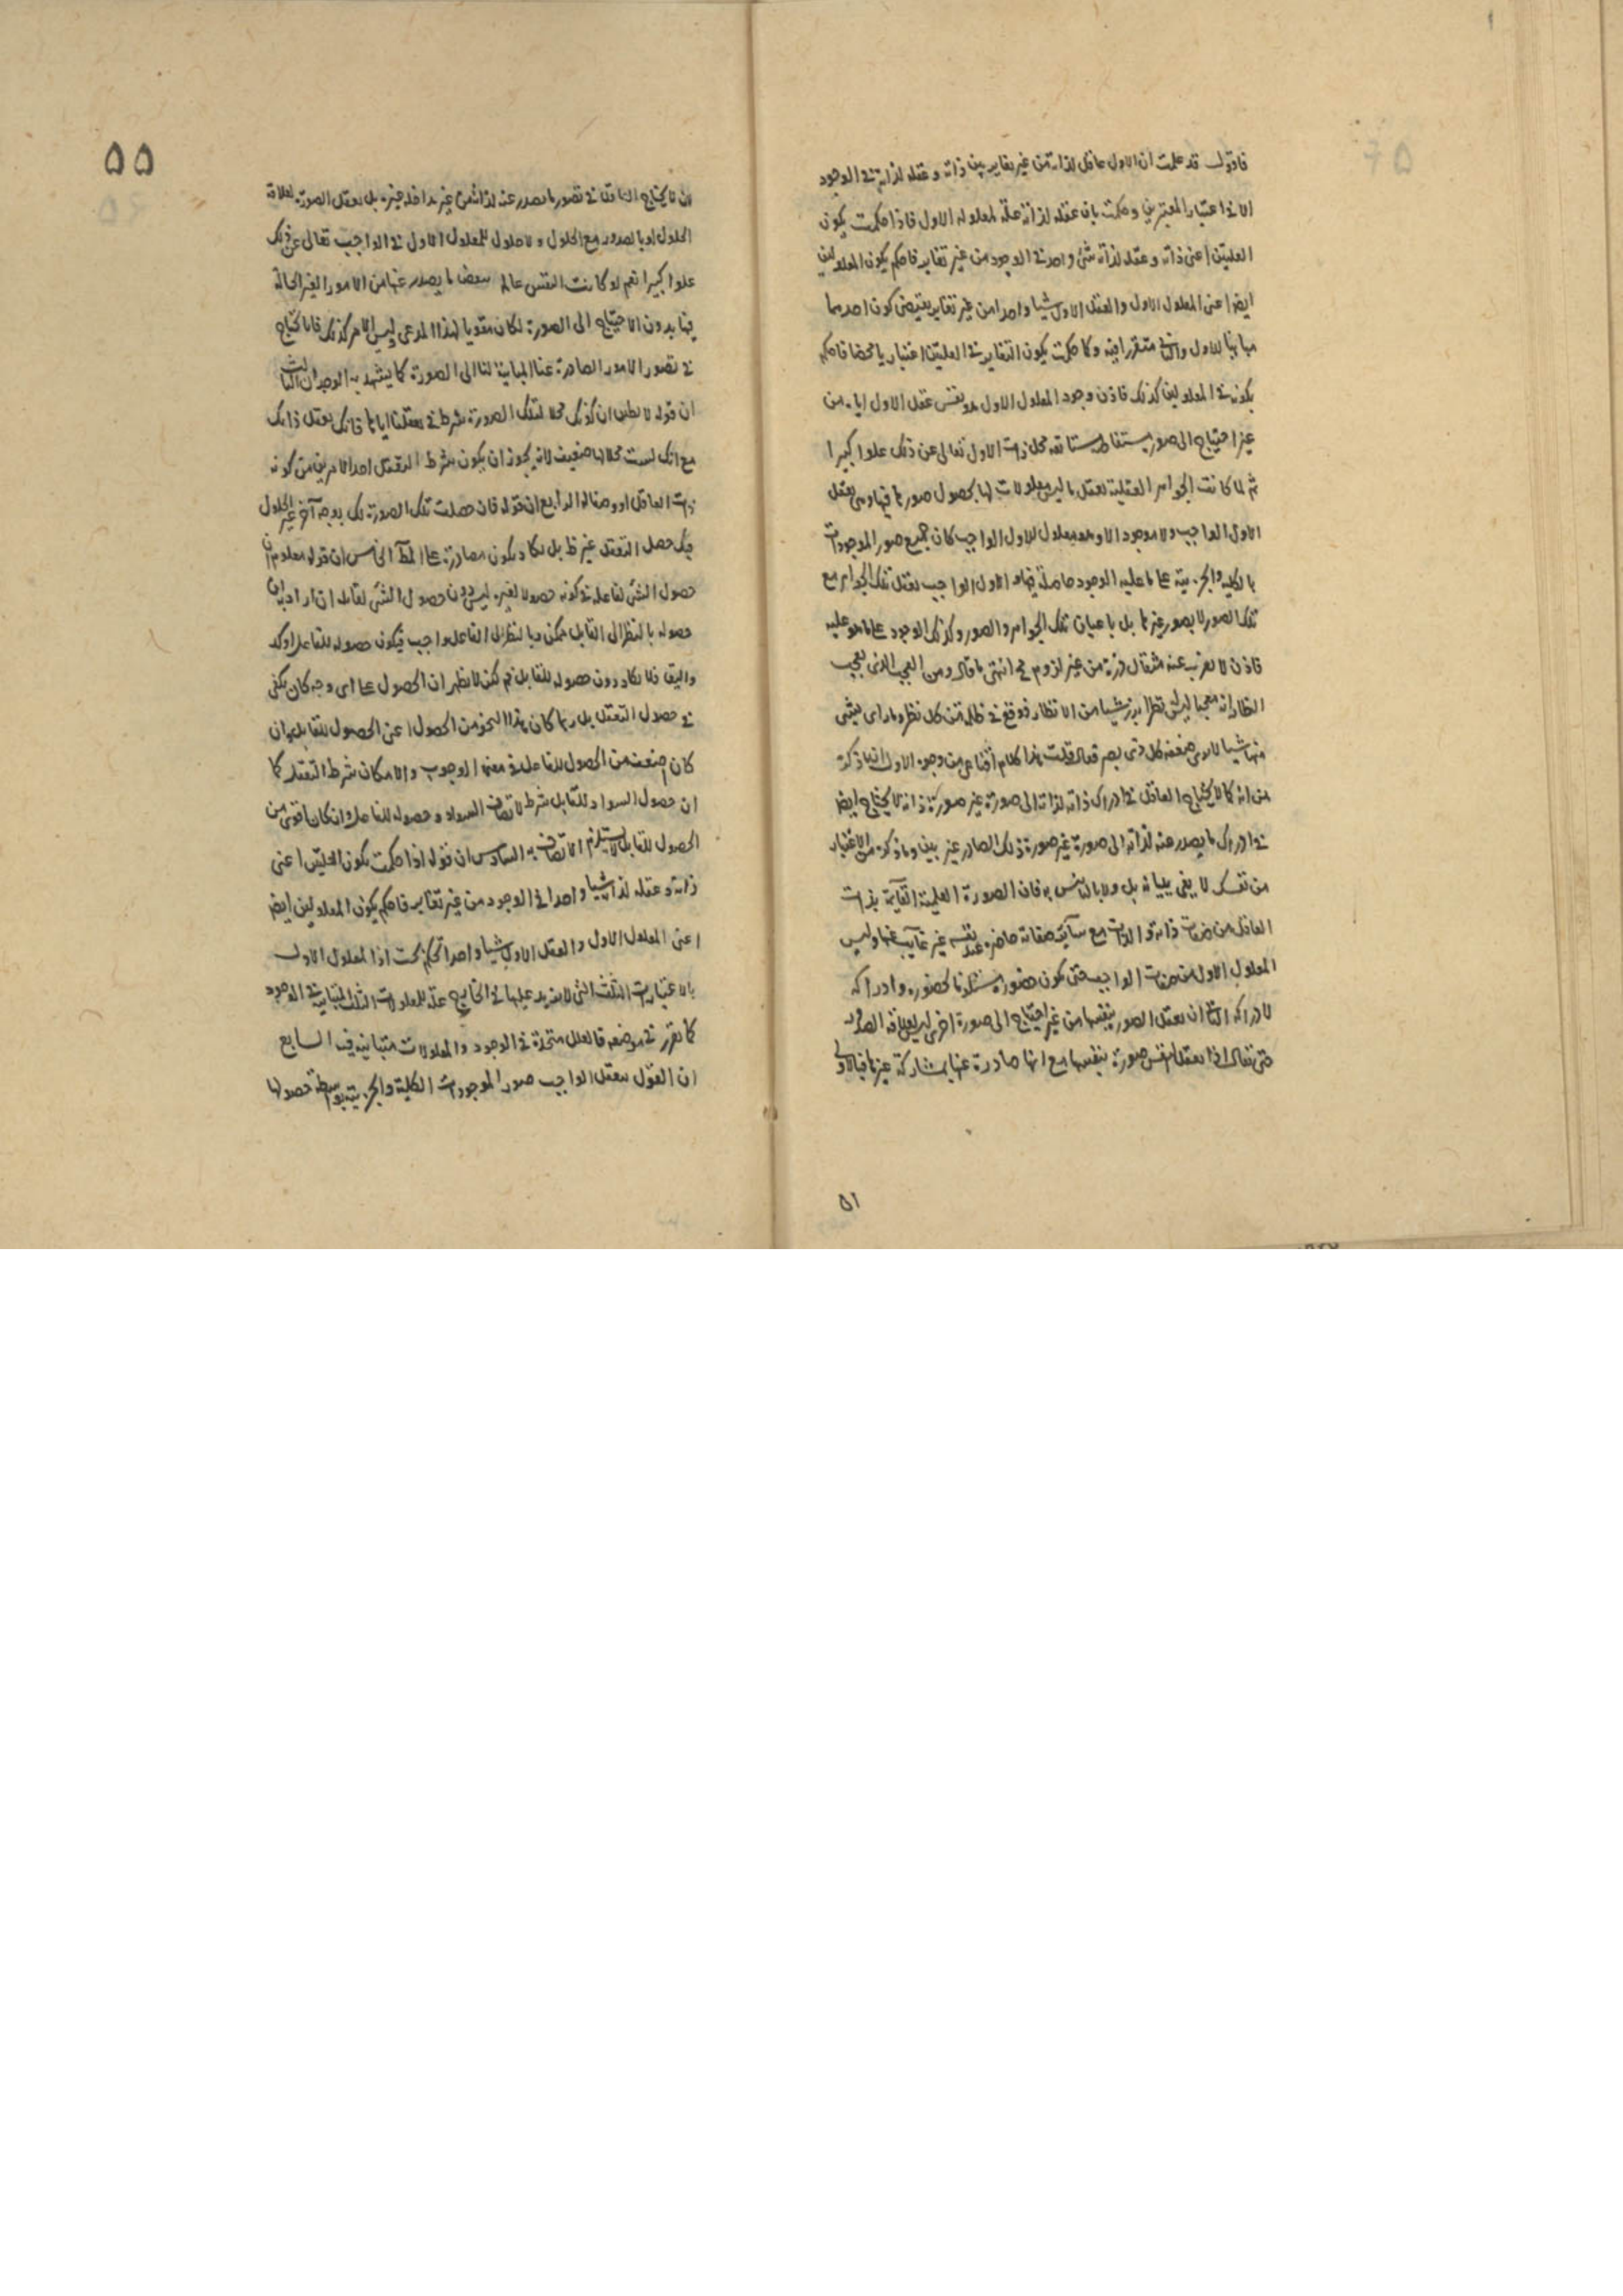 فاقول قد علمت ان الاول عاقل لذاته من غير تغاير بين ذاته و عقله لذاته في الوجود
الا في اعتبار المعتبرين و حكمت بان عقله لذاته علة لمعلوله الاول فاذا حكمت بكون
العلتين اعني ذاته و عقله لذاته شئ واحد في الوجود من غير تغاير فاحكم بكون المعلولين
ايضا عني المعلول الاول والعقل الاول شيا واحدا من غير تغاير يقتضي كون احدهما
مباينا للاول والثاني متقررا فيه وكما حكمت بكون التغاير في العلتين اعتباريا محضا فاحكم
بكونه في المعلولين كذلك فاذن وجود المعلول الاول هو نفس عقل الاول اياه من
غير احتياج الى صورة مستفاضة مستانفة تحل ذات الاول تعالى عن ذلك علوا كبيرا
ثم لما كانت الجواهر العقلية تعقل ما ليس بمعلولات لها بحصول صورها فيها وهي تعقل
الاول الواجب ولا موجود الا وهو معلول للاول الواجب كان جميع صور الموجودات
الكلية والجزئية على ما عليه الوجود حاصلة فيها و الاول الواجب يعقل تلك الجواهر مع
تلك الصور لا بصور غيرها بل باعيان تلك الجواهر والصور وكذلك الوجود على ما هو عليه
فاذن لا يعزب عنه مثقال ذرة من غير لزوم مح انتهى ما قال ومن العجب الذي يعجب
النظار انه معجبا ليرى نظرا برز شيا من الانظار فوقع في ظلمة من كل نظر وما راى بشئ
منها شيا لا يرى ضعفه كل ذي بصر فقال قلت هذا كلام اقناعي من وجوه الاول ان ما ذكره
من انه كما لا يحتاج العاقل في ادراك ذاته لذاته الى صورة غير صورة ذاته لا يحتاج ايضا
في ادراك ما يصدر عنه لذاته الى صورة غير صورة ذلك الصادر غير بين وما ذكره من الاعتبار
من نفسك لا يفي ببيانه بل ولا بالتانيس به فان الصورة العلمية القايمة بذات
العاقل من صفات ذاته و الذات مع سائر صفاته حاضرة عند نفسه غير غايب عنها وليس
المعلول الاول من صفات الواجب حتى يكون حضوره مستلزما لحضوره وادراكه
لادراكه الثاني ان تعقل الصور بنفسها من غير احتياج الى صورة اخرى ليس لعلاقة الصدور
حتى يقال اذا تعقل النفس صورة بنفسها مع انها صادرة عنها بمشاركة غيرها فبالاولى
۵۱
۵۵
ان لا يحتاج العاقل في تصور ما يصدر عنه لذاته من غير مداخلة غيره بل تعقل الصورة لعلاقة
الحلول او بالصدور مع الحلول ولا حلول للمعلول الاول في الواجب تعالى عن ذلك
علوا كبيرا نعم لو كانت النفس عالمة ببعض ما يصدر عنها من الامور الغير الحالة
فيها بدون الاحتياج الى الصورة لكان مقويا لهذا المدعى وليس الامر كذلك فانا نحتاج
في تصور الامور الصادرة عنا المباينة لنا الى الصورة كما يشهد به الوجدان الثالث
ان قوله لا يظن ان كونك محلا لتلك الصورة شرط في تعقلنا اياها فانك تعقل ذاتك
مع انك لست محلا لها ضعيف لانه يجوز ان يكون شرط التعقل احد الامرين من كونه
ذات العاقل او وصفا له الرابع ان قوله فان حصلت تلك الصورة لك بوجه آخر غير الحلول
فيك حصل التعقل غير ظ بل يكاد يكون مصادرة على المط الخامس ان قوله معلوم ان
حصول الشئ لفاعله في كونه حصولا لغيره ليس دون حصول الشئ لقابله ان اراد به ان
حصوله بالنظر الى القابل ممكن وبالنظر الى الفاعل واجب فيكون حصوله للفاعل اوكد
واليق فلا يكاد دون حصوله للقابل نعم لكن لا يظهر ان الحصول على اى وجه كان يكفي
في حصول التعقل بل ربما كان هذا النحو من الحصول اعني الحصول للقابل وان
كان اضعف من الحصول للفاعل في معنى الوجوب والامكان شرط التعقل كما
ان حصول السواد للقابل شرط لاتصاف السواد و حصوله للفاعل وان كان اقوى من
الحصول للقابل لا يستلزم الاتصاف به السادس ان قوله اذا حكمت بكون العلتين اعني
ذاته و عقله لذاته شيا واحدا في الوجود من غير تغاير فاحكم بكون المعلولين ايضا
اعني المعلول الاول والعقل الاول شيا واحدا تحكم بحت اذا لمعلول الاول
بالاعتبارات الثلث التي لا يزيد عليها في الخارج علة للمعلولات الثلث المتباينة في الوجود
كما تقرر في موضعه فالعلل متحدة في الوجود والمعلولات متباينة فيه السابع
ان القول بتعقل الواجب صور الموجودات الكلية والجزئية بواسطة حصولها